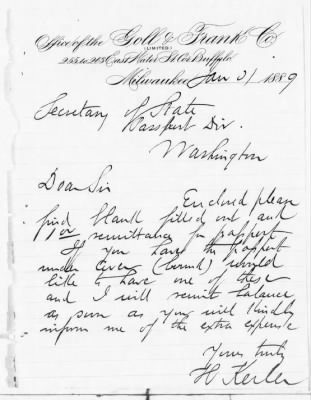 Office of the Goll & Frank Co
(LIMITED)
East Water St. Cor Buffalo
Milwaukee Jan 31 1889
Secretary of State
Passport Div.
Washington
Dear Sir
Enclosed please
find blank filled out and
remittance for passport
If you have the passport
under cover would
like to have one of these
and I will remit balance
as soon as you will kindly
inform me of the extra expense
Yours truly
H Kerler